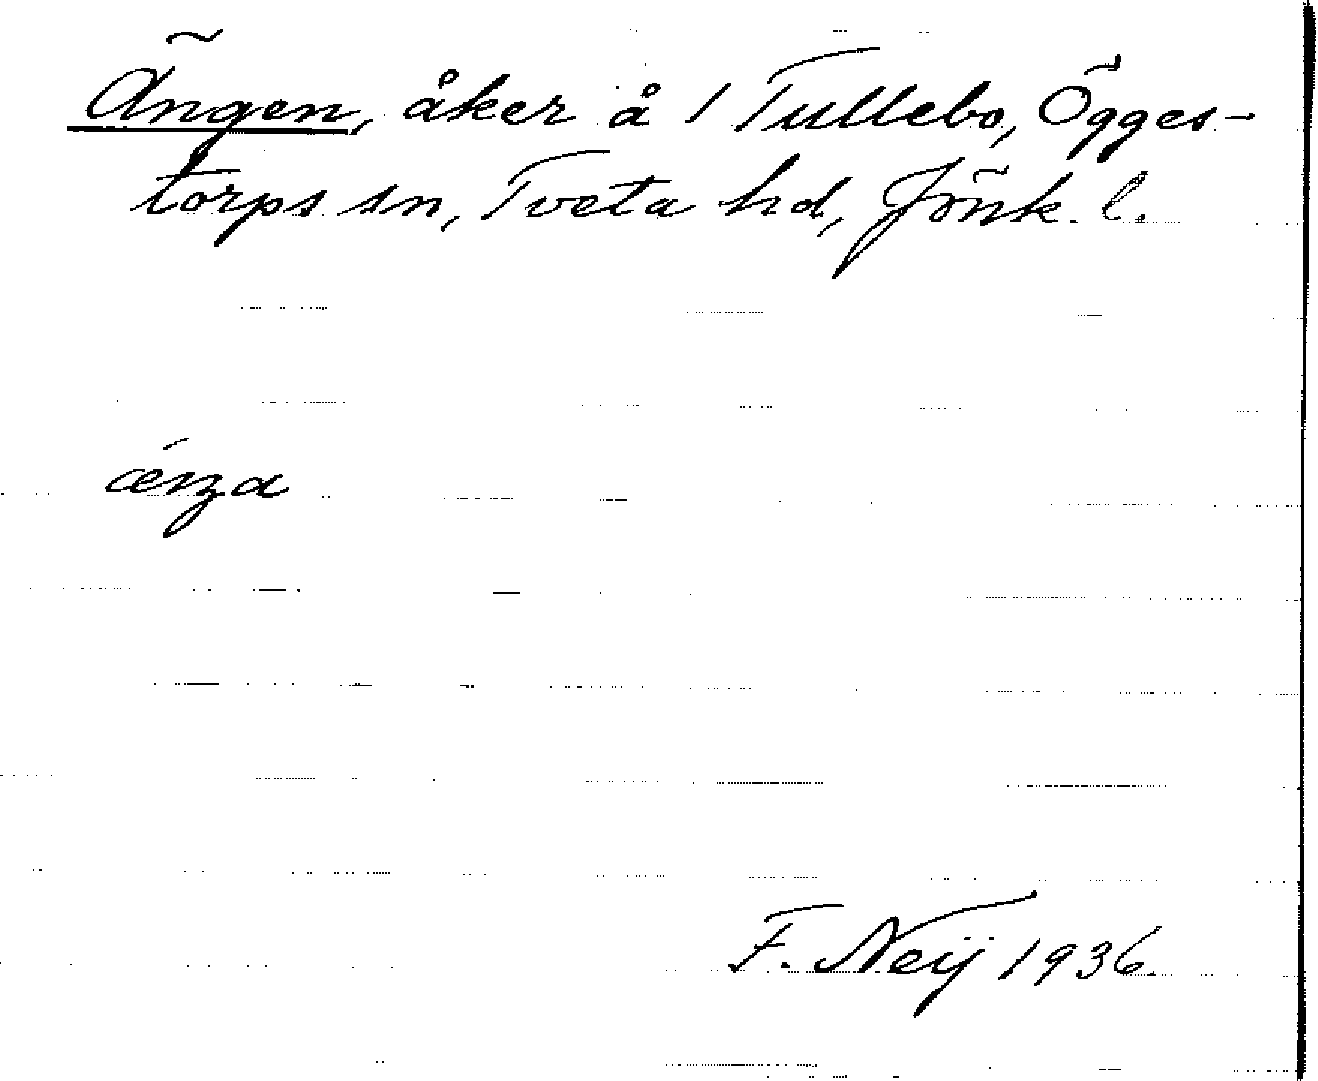 Ängen, åker å 1 Tullebo, Ögges-
torps sn, Tveta hd, Jönk. l.
F. Neij 1936.